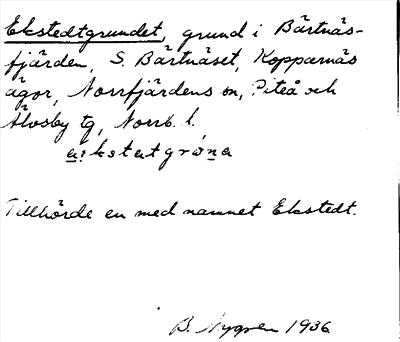 Ekstedtgrundet, grund i Bärtnäs-
fjärden, S. Bärtnäset, Kopparnäs
ägor, Norrfjärdens sn, Piteå och
Älvsby tg, Norrb. l.

Tillhörde en med namnet Ekstedt.
B. Nygren 1936